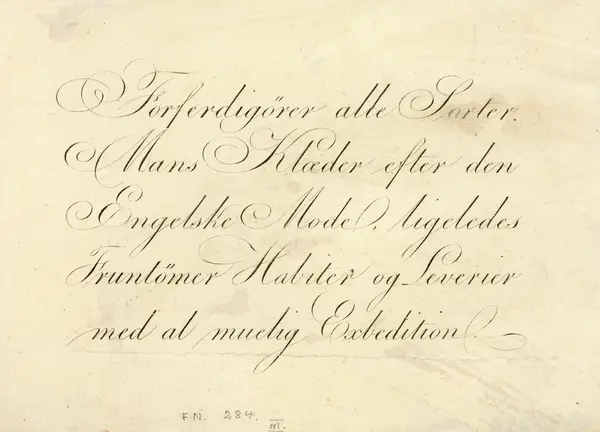 Forferdigörer alle Sorter.
Mans Klæder efter den
Engelske Mode, ligeledes
Fruntömer Habiter og Leverier
med al muelig Exbedition.
F.N. 284.